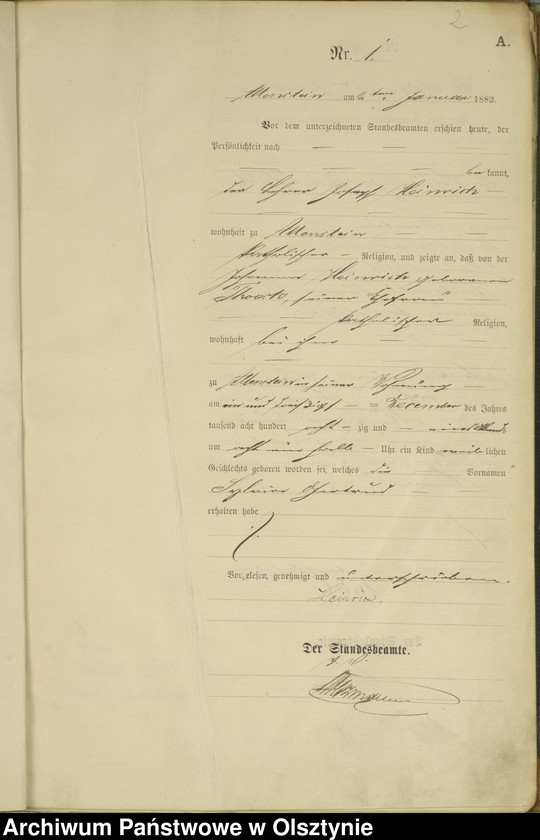 2
A.
Nr. 1.
Allenstein am 2ten Januar 1882.
Vor dem unterzeichneten Standesbeamten erschien heute, der
Persönlichkeit nach
bekannt,
der Lehrer Joseph Heinrich
wohnhaft zu Allenstein
katholischer Religion, und zeigte an, daß von der
Johanna Heinrich geborenen
seiner Ehefrau
katholischer Religion,
wohnhaft bei ihm
zu Allenstein in seiner Wohnung
am ein und dreißigsten December des Jahres
tausend acht hundert achtzig und eins Abends
um acht ein halb Uhr ein Kind weiblichen
Geschlechts geboren worden sei, welches die Vornamen
Gertrud
erhalten habe
Vorgelesen, genehmigt und unterschrieben.
Heinrich
Der Standesbeamte.
Archiwum Państwowe w Olsztynie